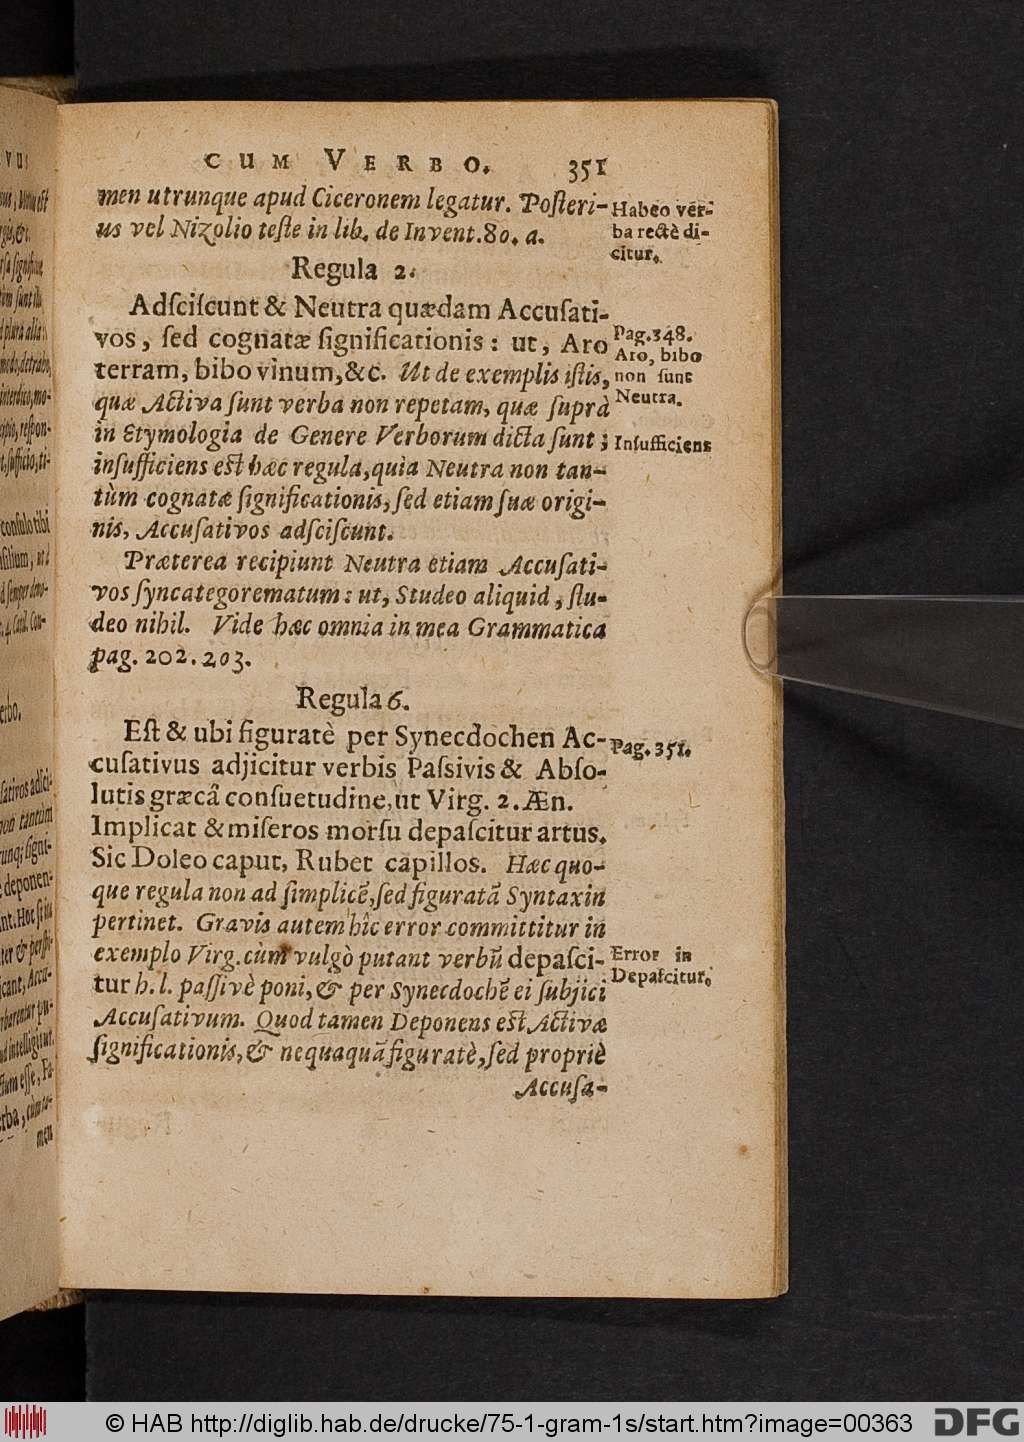 CUM VERBO. 351
men utrunque apud Ciceronem legatur. Poſteri-
us vel Nizolio teſte in lib. de Invent. 80. a.
Habeo ver-
ba rectè di-
citur.
Regula 2.
Adſciſcunt & Neutra quædam Accuſati-
vos, ſed cognatæ ſignificationis: ut, Aro
terram, bibo vinum, &c. Ut de exemplis iſtis,
quæ Activa ſunt verba non repetam, quæ ſuprà
in Etymologia de Genere Verborum dicta ſunt;
inſufficiens eſt hæc regula, quia Neutra non tan-
tùm cognatæ ſignificationis, ſed etiam ſuæ origi-
nis, Accuſativos adſciſcunt.
Pag. 348.
Aro, bibo
non ſunt
Neutra.
Inſufficiens
Præterea recipiunt Neutra etiam Accuſati-
vos ſyncategorematum: ut, Studeo aliquid, ſtu-
deo nihil. Vide hæc omnia in mea Grammatica
pag. 202. 203.
Regula 6.
Eſt & ubi figuratè per Synecdochen Ac-
cuſativus adjicitur verbis Paſsivis & Abſo-
lutis græcâ conſuetudine, ut Virg. 2. Æn.
Implicat & miſeros morſu depaſcitur artus.
Sic Doleo caput, Rubet capillos. Hæc quo-
que regula non ad ſimplicẽ, ſed figuratã Syntaxin
pertinet. Gravis autem hîc error committitur in
exemplo Virg. cùm vulgò putant verbũ depaſci-
tur h. l. paſſivè poni, & per Synecdochẽ ei ſubjici
Accuſativum. Quod tamen Deponens eſt Activæ
ſignificationis, & nequaquã figuratè, ſed propriè
Accuſa-
Pag. 351.
Error in
Depaſcitur.
© HAB http://diglib.hab.de/drucke/75-1-gram-1s/start.htm?image=00363
DFG